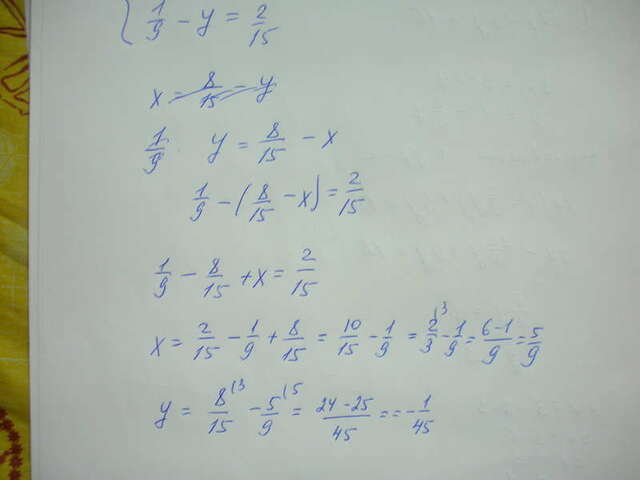 { 1/9 - y = 2/15
x = 8/15 - y
1/9 · y = 8/15 - x
1/9 - (8/15 - x) = 2/15
1/9 - 8/15 + x = 2/15
x = 2/15 - 1/9 + 8/15 = 10/15 - 1/9 = 2/3 (3 - 1/9 = 6-1/9 = 5/9
y = 8/15 (3 - 5/9 (5 = 24-25/45 = = - 1/45